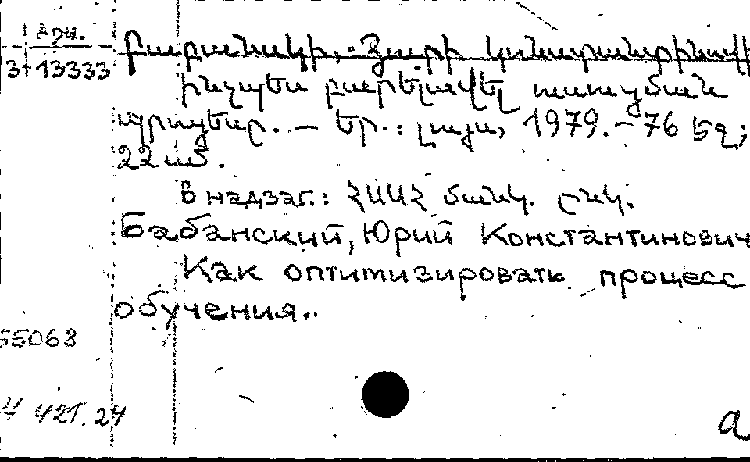 арм.
3-13333
Բաբանսկի, Յուրի Կոնստանտինովի
Ինչպես բարելավել ուսուցման
պրոցեսը. — Եր.: Լույս, 1979. - 76 էջ;
22 սմ.
В надзаг.: ՀՍՍՀ մանկ. ընկ.
Бабанский, Юрий Константинович
Как оптимизировать процесс
обучения..
55068